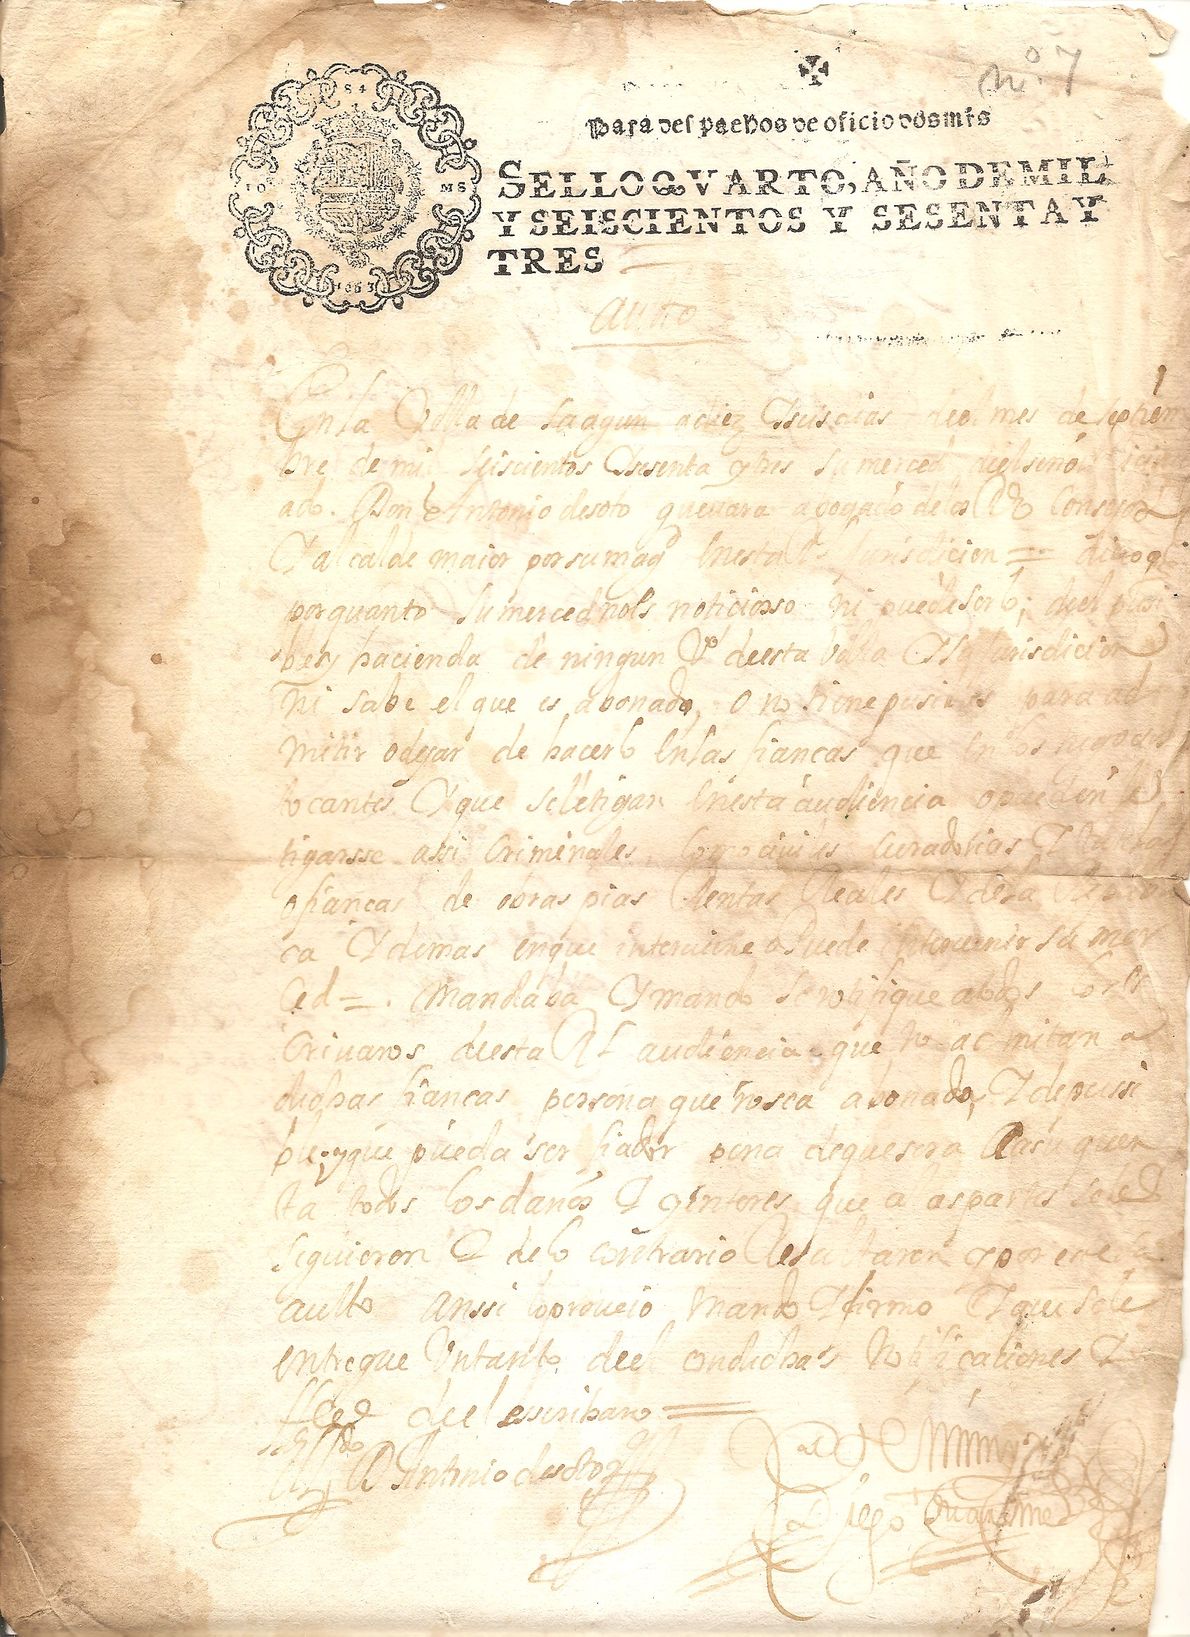 nº 7
Para despachos de oficio dos mrs
SELLO QVARTO, AÑO DE MIL
Y SEISCIENTOS Y SESENTA Y
TRES
auto
En la Villa de Saagun a diez y seis dias deel mes de septiem
bre de mil seiscientos y sesenta y tres su merced deel señor
ado. Don Antonio de soto guevara abogado de los Rs Consejos
Y alcalde maior por su magd en esta Va Y Jurisdicion = dijo q
por quanto su merced no es noticiosso ni puede serlo; deel
y hacienda de ningun Vo de esta Villa Y su Jurisdicion
ni sabe el que es abonado, o no tiene posibles para ad
mitir o dejar de hacerlo en las fiancas que en los negocios
tocantes Y que se letigan en esta audiencia o pueden le
tigarsse assi Criminales, Como civiles Curadorias Y tutelas
o fiancas de obras pias Rentas Reales Y de la
ca Y demas en que interviene o Puede intervenir su mer
ced = . Mandaba Y mando se notifique a todos los es
crivanos de esta Rl audiencia que no admitan a
dichas fiancas persona que no sea abonado, Y de possi
ble; y que pueda ser fiador pena de que sera a su quen
ta todos los daños Y yntereses que a las partes se les
siguieren Y de lo contrario Resultaren y por este su
autto anssi lo proveio mando Y firmo Y que se le
entregue Un tanto deel con dichas Notificaciones Y
ffee deel escribano =
Ldo D Antonio de soto
Diego